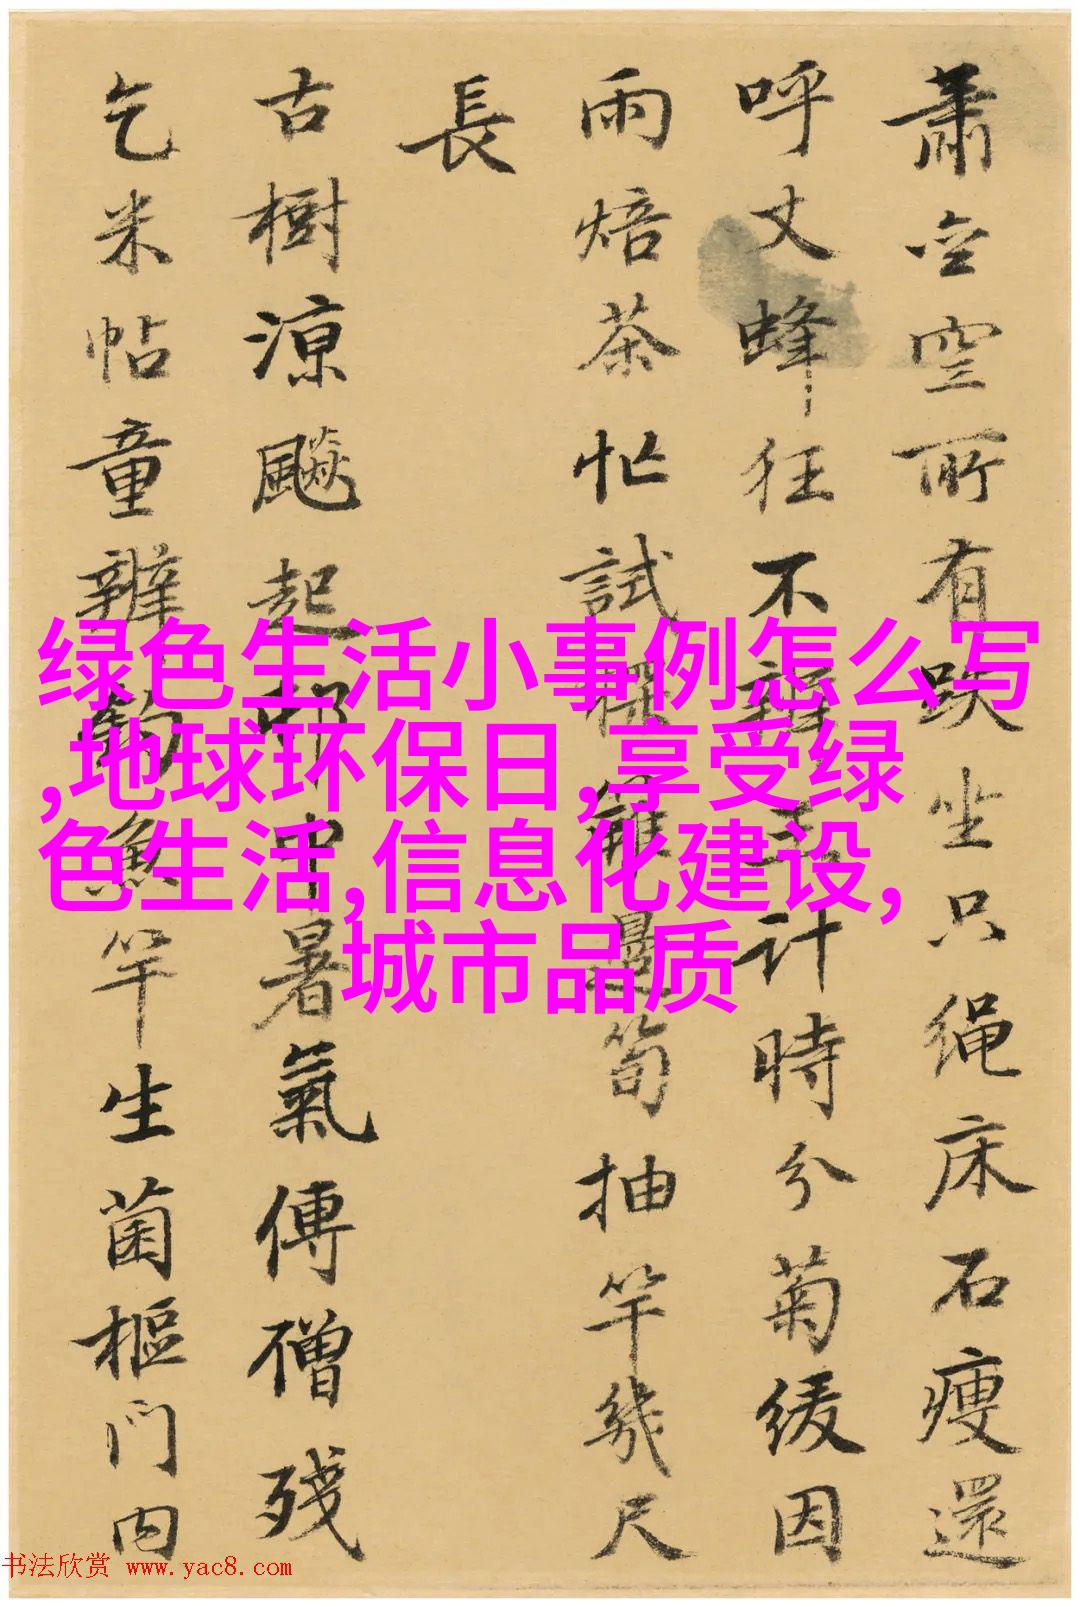 蕭空所有跌坐只绳床石瘦還
呼丈蜂狂不計時分菊緩因
雨焙茶忙試邊筍抽竿幾尺
長
古樹涼飈起中暑氣傳僧殘
乞米帖童辨釣魚竿生菌樞門内
绿色生活小事例怎么写
,地球环保日,享受绿
色生活,信息化建设,
城市品质
书法欣赏 www.yac8.com